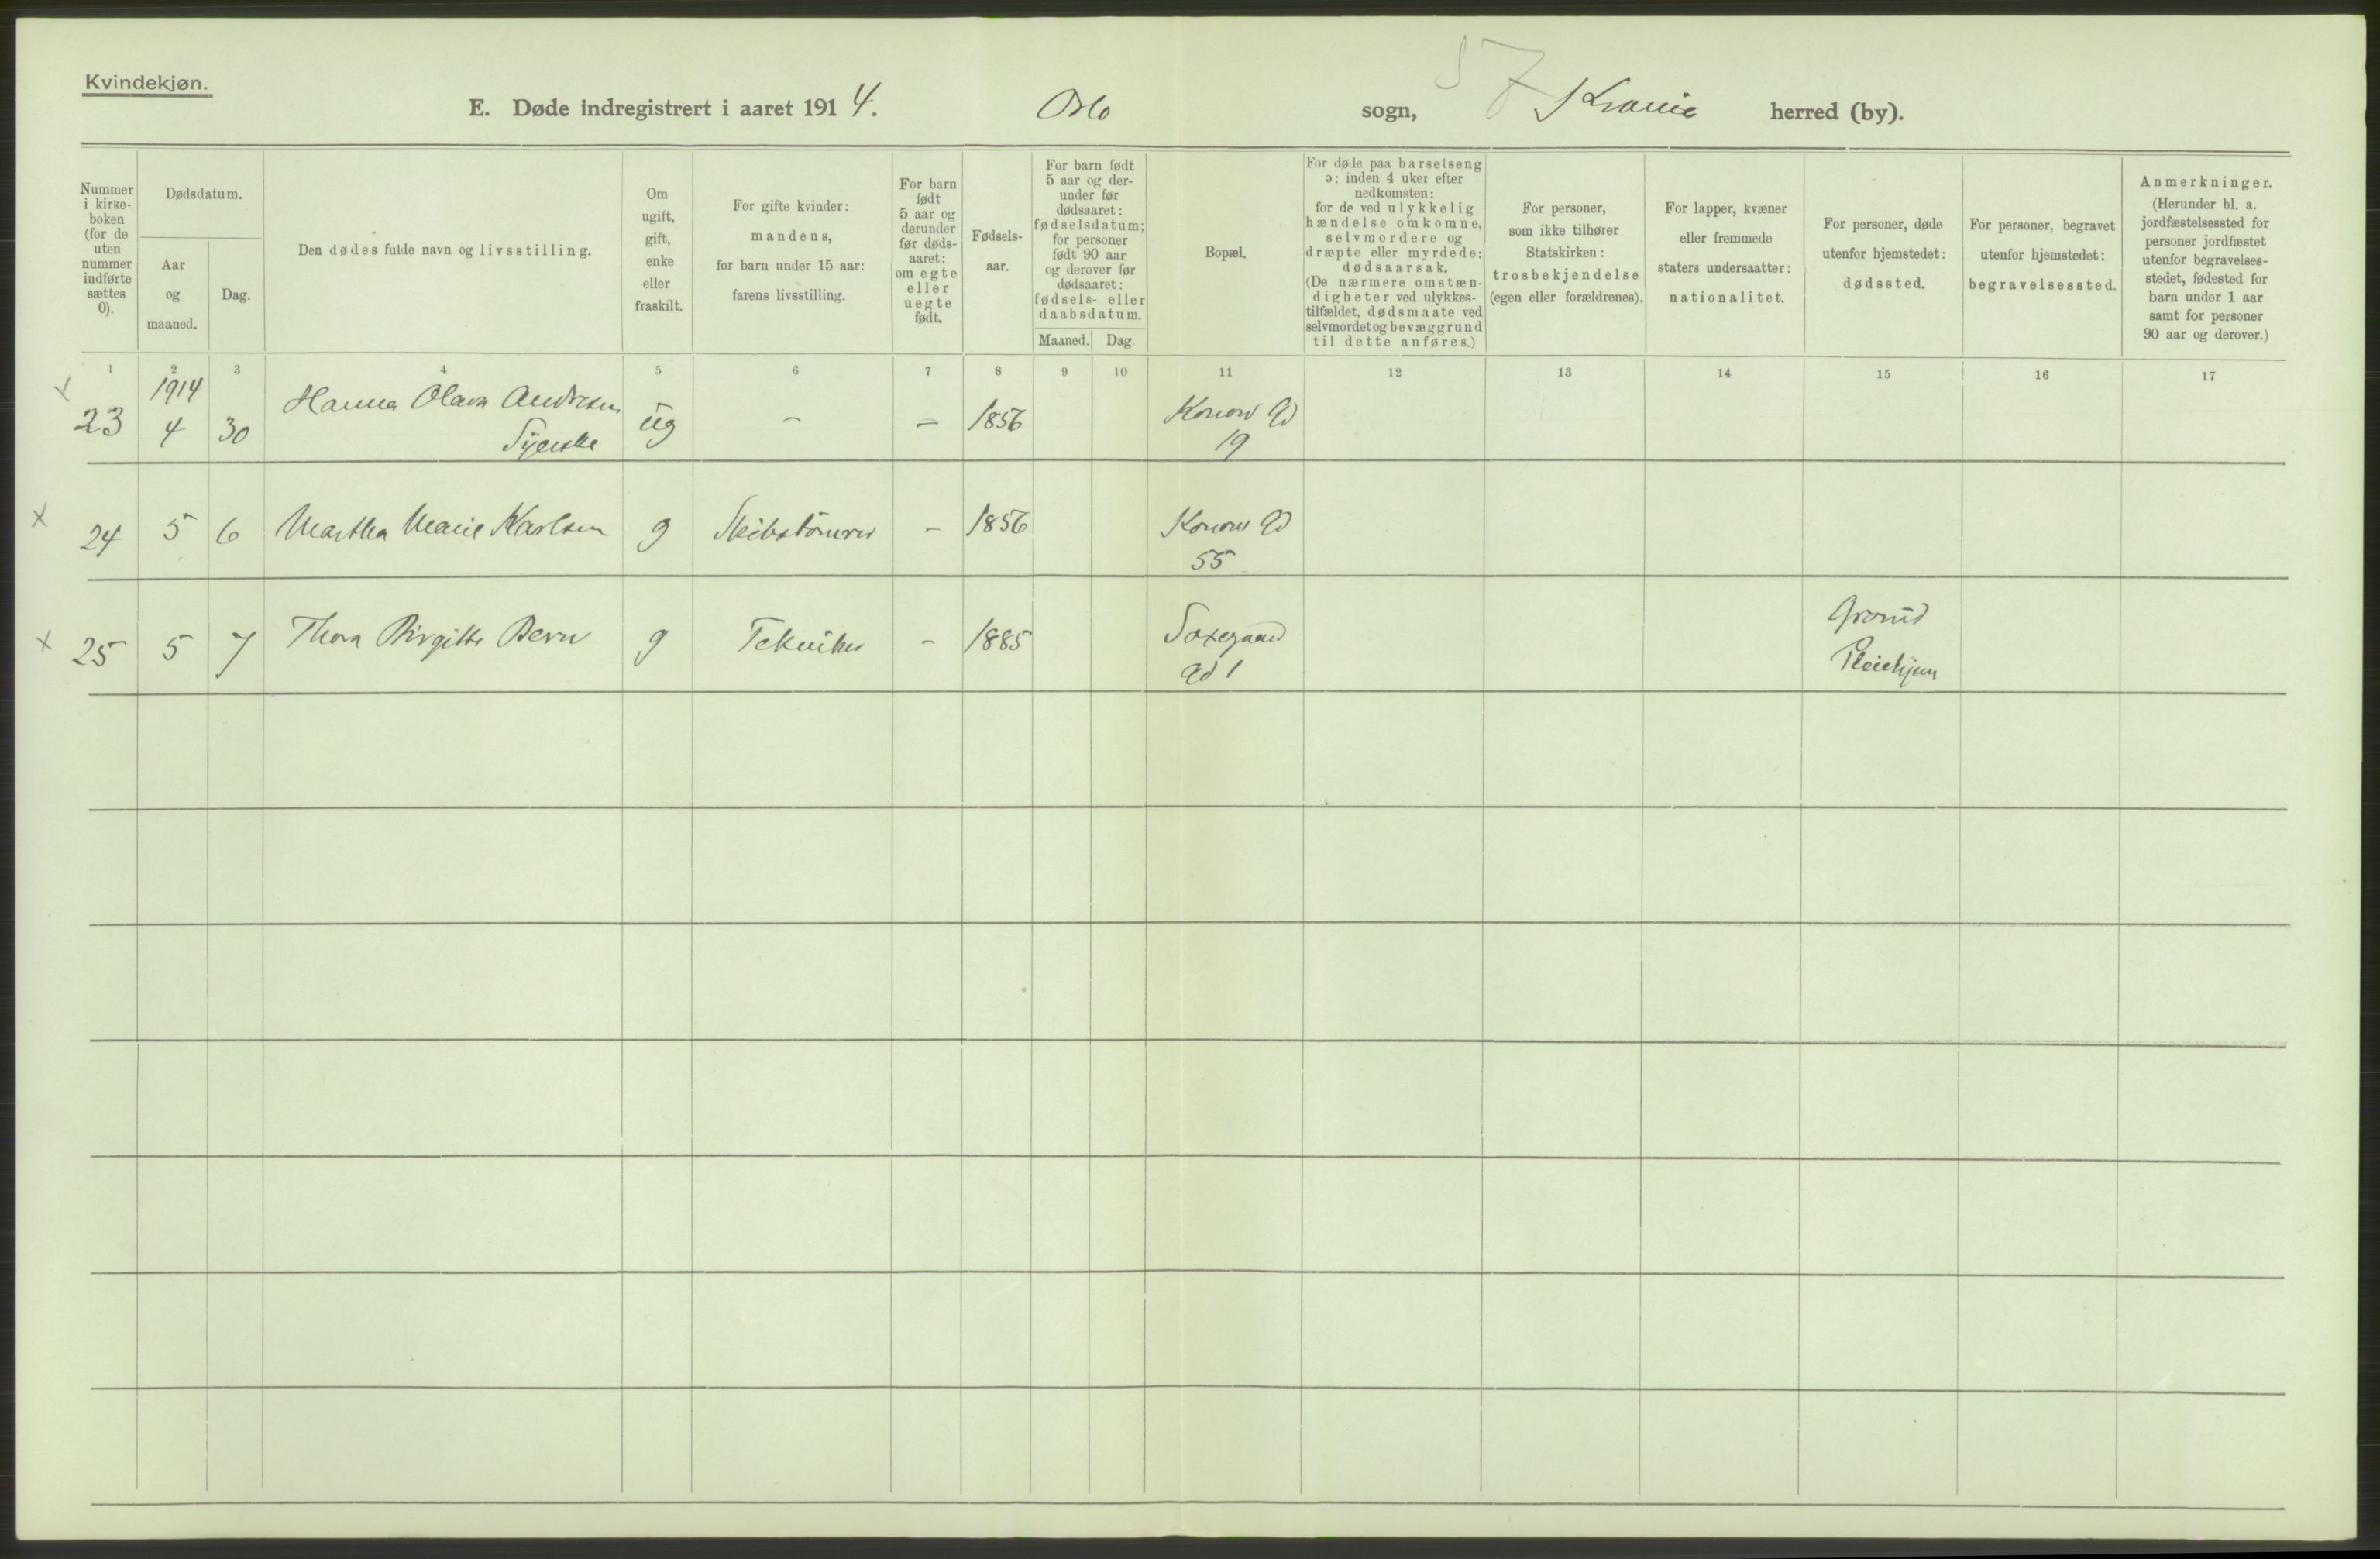 Kvindekjøn.
57
E. Døde indregistrert i aaret 1914. Oslo sogn, Krania herred (by).
Nummer
i kirke-
boken
(for de
uten
nummer
indførte
sættes
0).
Dødsdatum.
Aar
og
maaned.
Dag.
Den dødes fulde navn og livsstilling.
Om
ugift,
gift,
enke
eller
fraskilt.
For gifte kvinder:
mandens,
for barn under 15 aar:
farens livsstilling.
For barn
født
5 aar og
derunder
før døds-
aaret:
om egte
eller
uegte
født.
Fødsels-
aar.
For barn født
5 aar og der-
under før
dødsaaret:
fødselsdatum;
for personer
født 90 aar
og derover før
dødsaaret:
fødsels- eller
daabsdatum.
Maaned. Dag
Bopæl.
For døde paa barselseng
ɔ: inden 4 uker efter
nedkomsten:
for de ved ulykkelig
hændelse omkomne,
selvmordere og
dræpte eller myrdede:
dødsaarsak.
(De nærmere omstæn-
digheter ved ulykkes-
tilfældet, dødsmaate ved
selvmordet og bevæggrund
til dette anføres.)
For personer,
som ikke tilhører
Statskirken:
trosbekjendelse
(egen eller forældrenes).
For lapper, kvæner
eller fremmede
staters undersaatter:
nationalitet.
For personer, døde
utenfor hjemstedet:
dødssted.
For personer, begravet
utenfor hjemstedet:
begravelsessted.
Anmerkninger.
(Herunder bl. a.
jordfæstelsessted for
personer jordfæstet
utenfor begravelses-
stedet, fødested for
barn under 1 aar
samt for personer
90 aar og derover.)
1 2 3 4 5 6 7 8 9 10 11 12 13 14 15 16 17
1914
x 23 4 30 Hanna Olava Andresen ug - - 1856 Konow Gd
Syerske 19
x 24 5 6 Martha Marie Karlsen g Skibstømrer - 1856 Konow Gd
55
x 25 5 7 Thora Birgitte Bern g Tekniker - 1885 Saxegaard Grorud
Gd 1 Pleiehjem